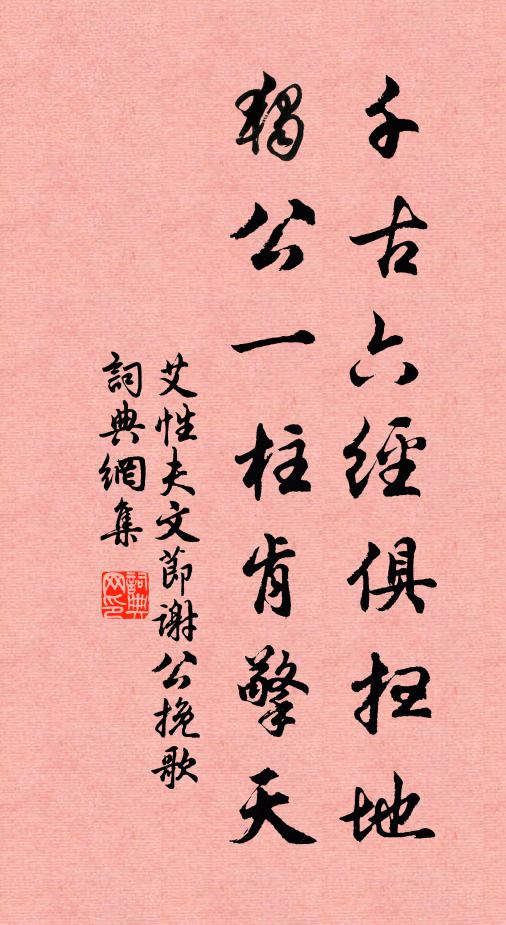 千古六經俱扫地
獨公一柱肯擎天
艾性夫文節謝公挽歌
詞典網集
詞典网印